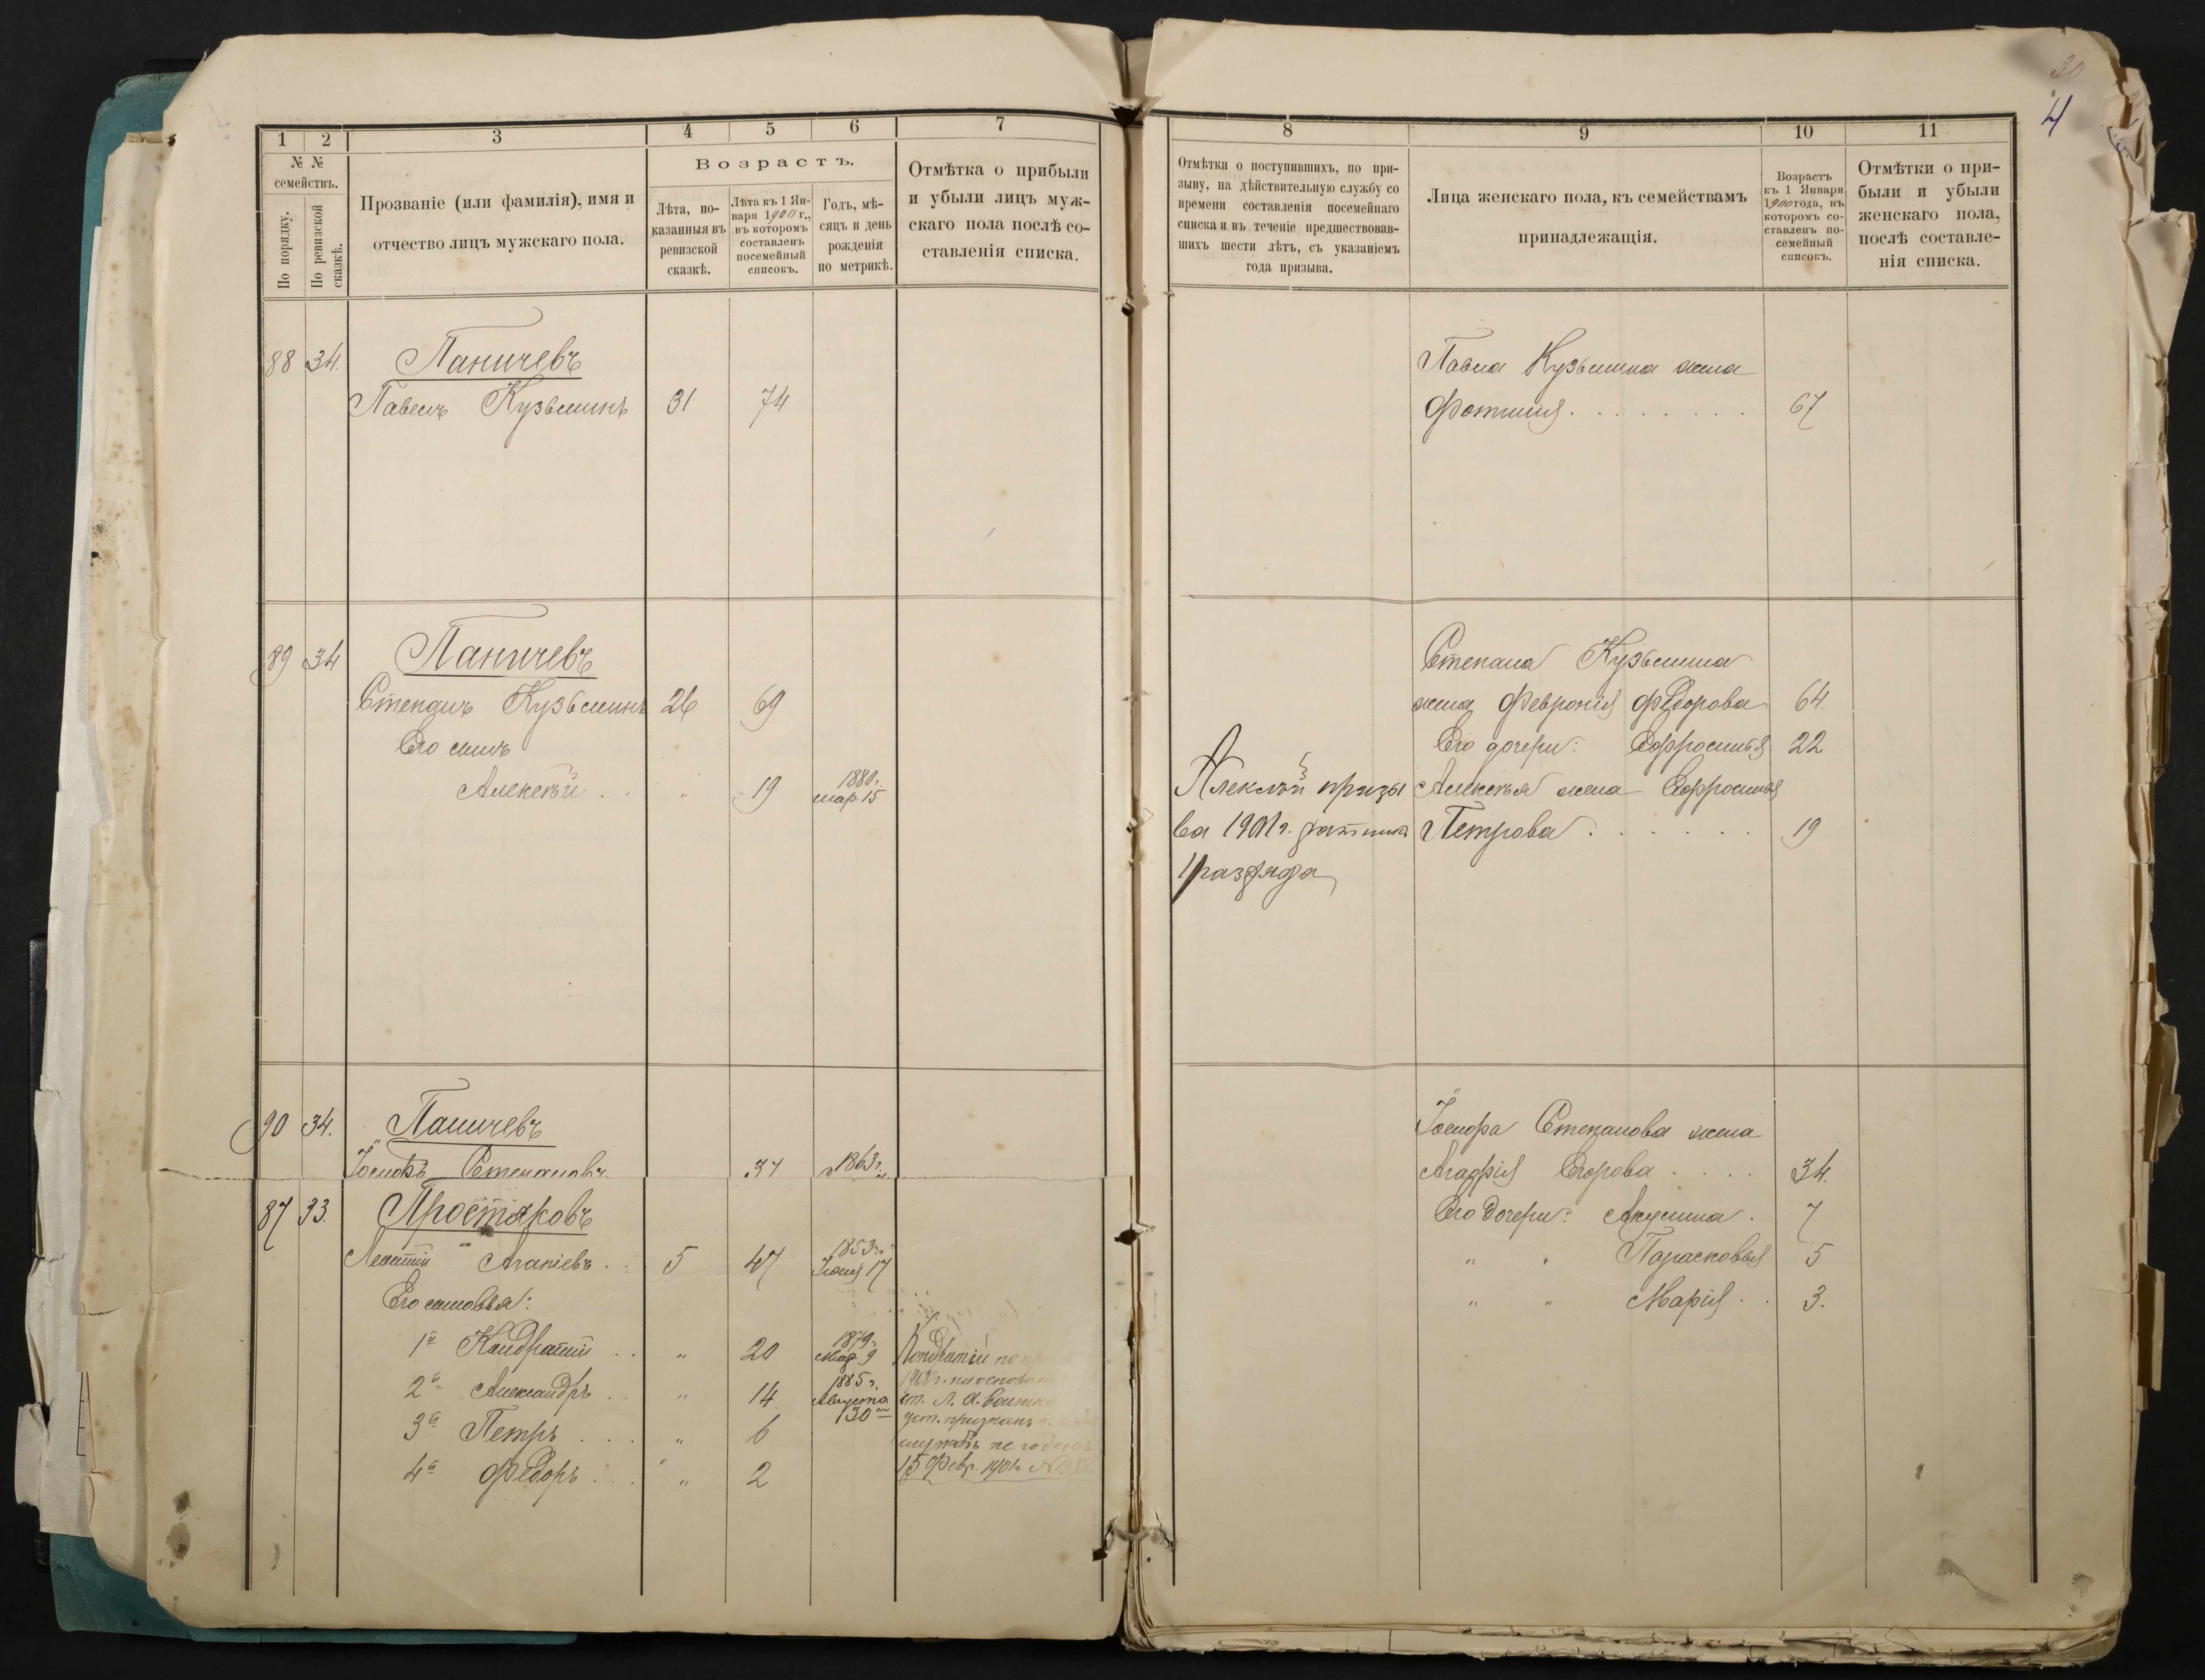 30
4
1 2 3 4 5 6 7
№ № семействъ.
По порядку.
По ревизской сказкѣ.
Прозваніе (или фамилія), имя и
отчество лицъ мужскаго пола.
Возрастъ.
Лѣта, по-
казанныя въ
ревизской
сказкѣ.
Лѣта къ 1 Ян-
варя 1900 г.,
въ которомъ
составленъ
посемейный
списокъ.
Годъ, мѣ-
сяцъ и день
рожденія
по метрикѣ.
Отмѣтка о прибыли
и убыли лицъ муж-
скаго пола послѣ со-
ставленія списка.
88 34. Паничевъ
Павелъ Кузьминъ 31 74
89 34 Паничевъ
Степанъ Кузьминъ 26 69
Его сынъ
Алексѣй . . " 19 1880 г.
мар. 15
90 34. Паничевъ
Іосифъ Степановъ 37 1863 г.
87 33. Простяковъ
Леонтій Агапіевъ . . 5 47 1853 г.
Іюня 17
Его сыновья:
1й Кондратій . . " 20 1879 г.
Мар. 9
2й Александръ . . " 14 1885 г.
Августа
30
3й Петръ . . . " 6
4й Федоръ . . . " 2
Кондратій по
уст. признанъ
службѣ не
15 Февр. 1901 г. №
8 9 10 11
Отмѣтки о поступившихъ, по при-
зыву, на дѣйствительную службу со
времени составленія посемейнаго
списка и въ теченіе предшествовав-
шихъ шести лѣтъ, съ указаніемъ
года призыва.
Лица женскаго пола, къ семействамъ
принадлежащія.
Возрастъ
къ 1 Января
1900 года, въ
которомъ со-
ставленъ по-
семейный
списокъ.
Отмѣтки о при-
были и убыли
женскаго пола,
послѣ составле-
нія списка.
Павла Кузьмина жена
Фотинія . . . . . . . . 67
Степана Кузьмина
жена Февронія Федорова 64.
Его дочери: Ефросинья 22
Алексѣя жена Ефросинья
Петрова . . . . . . 19
Алексѣй призы
ва 1901 г. ратника
1 разряда
Іосифа Степанова жена
Агафія Егорова . . . . 34.
Его дочери: Акулина . 7
" " Парасковья 5
" " Марія . . 3.